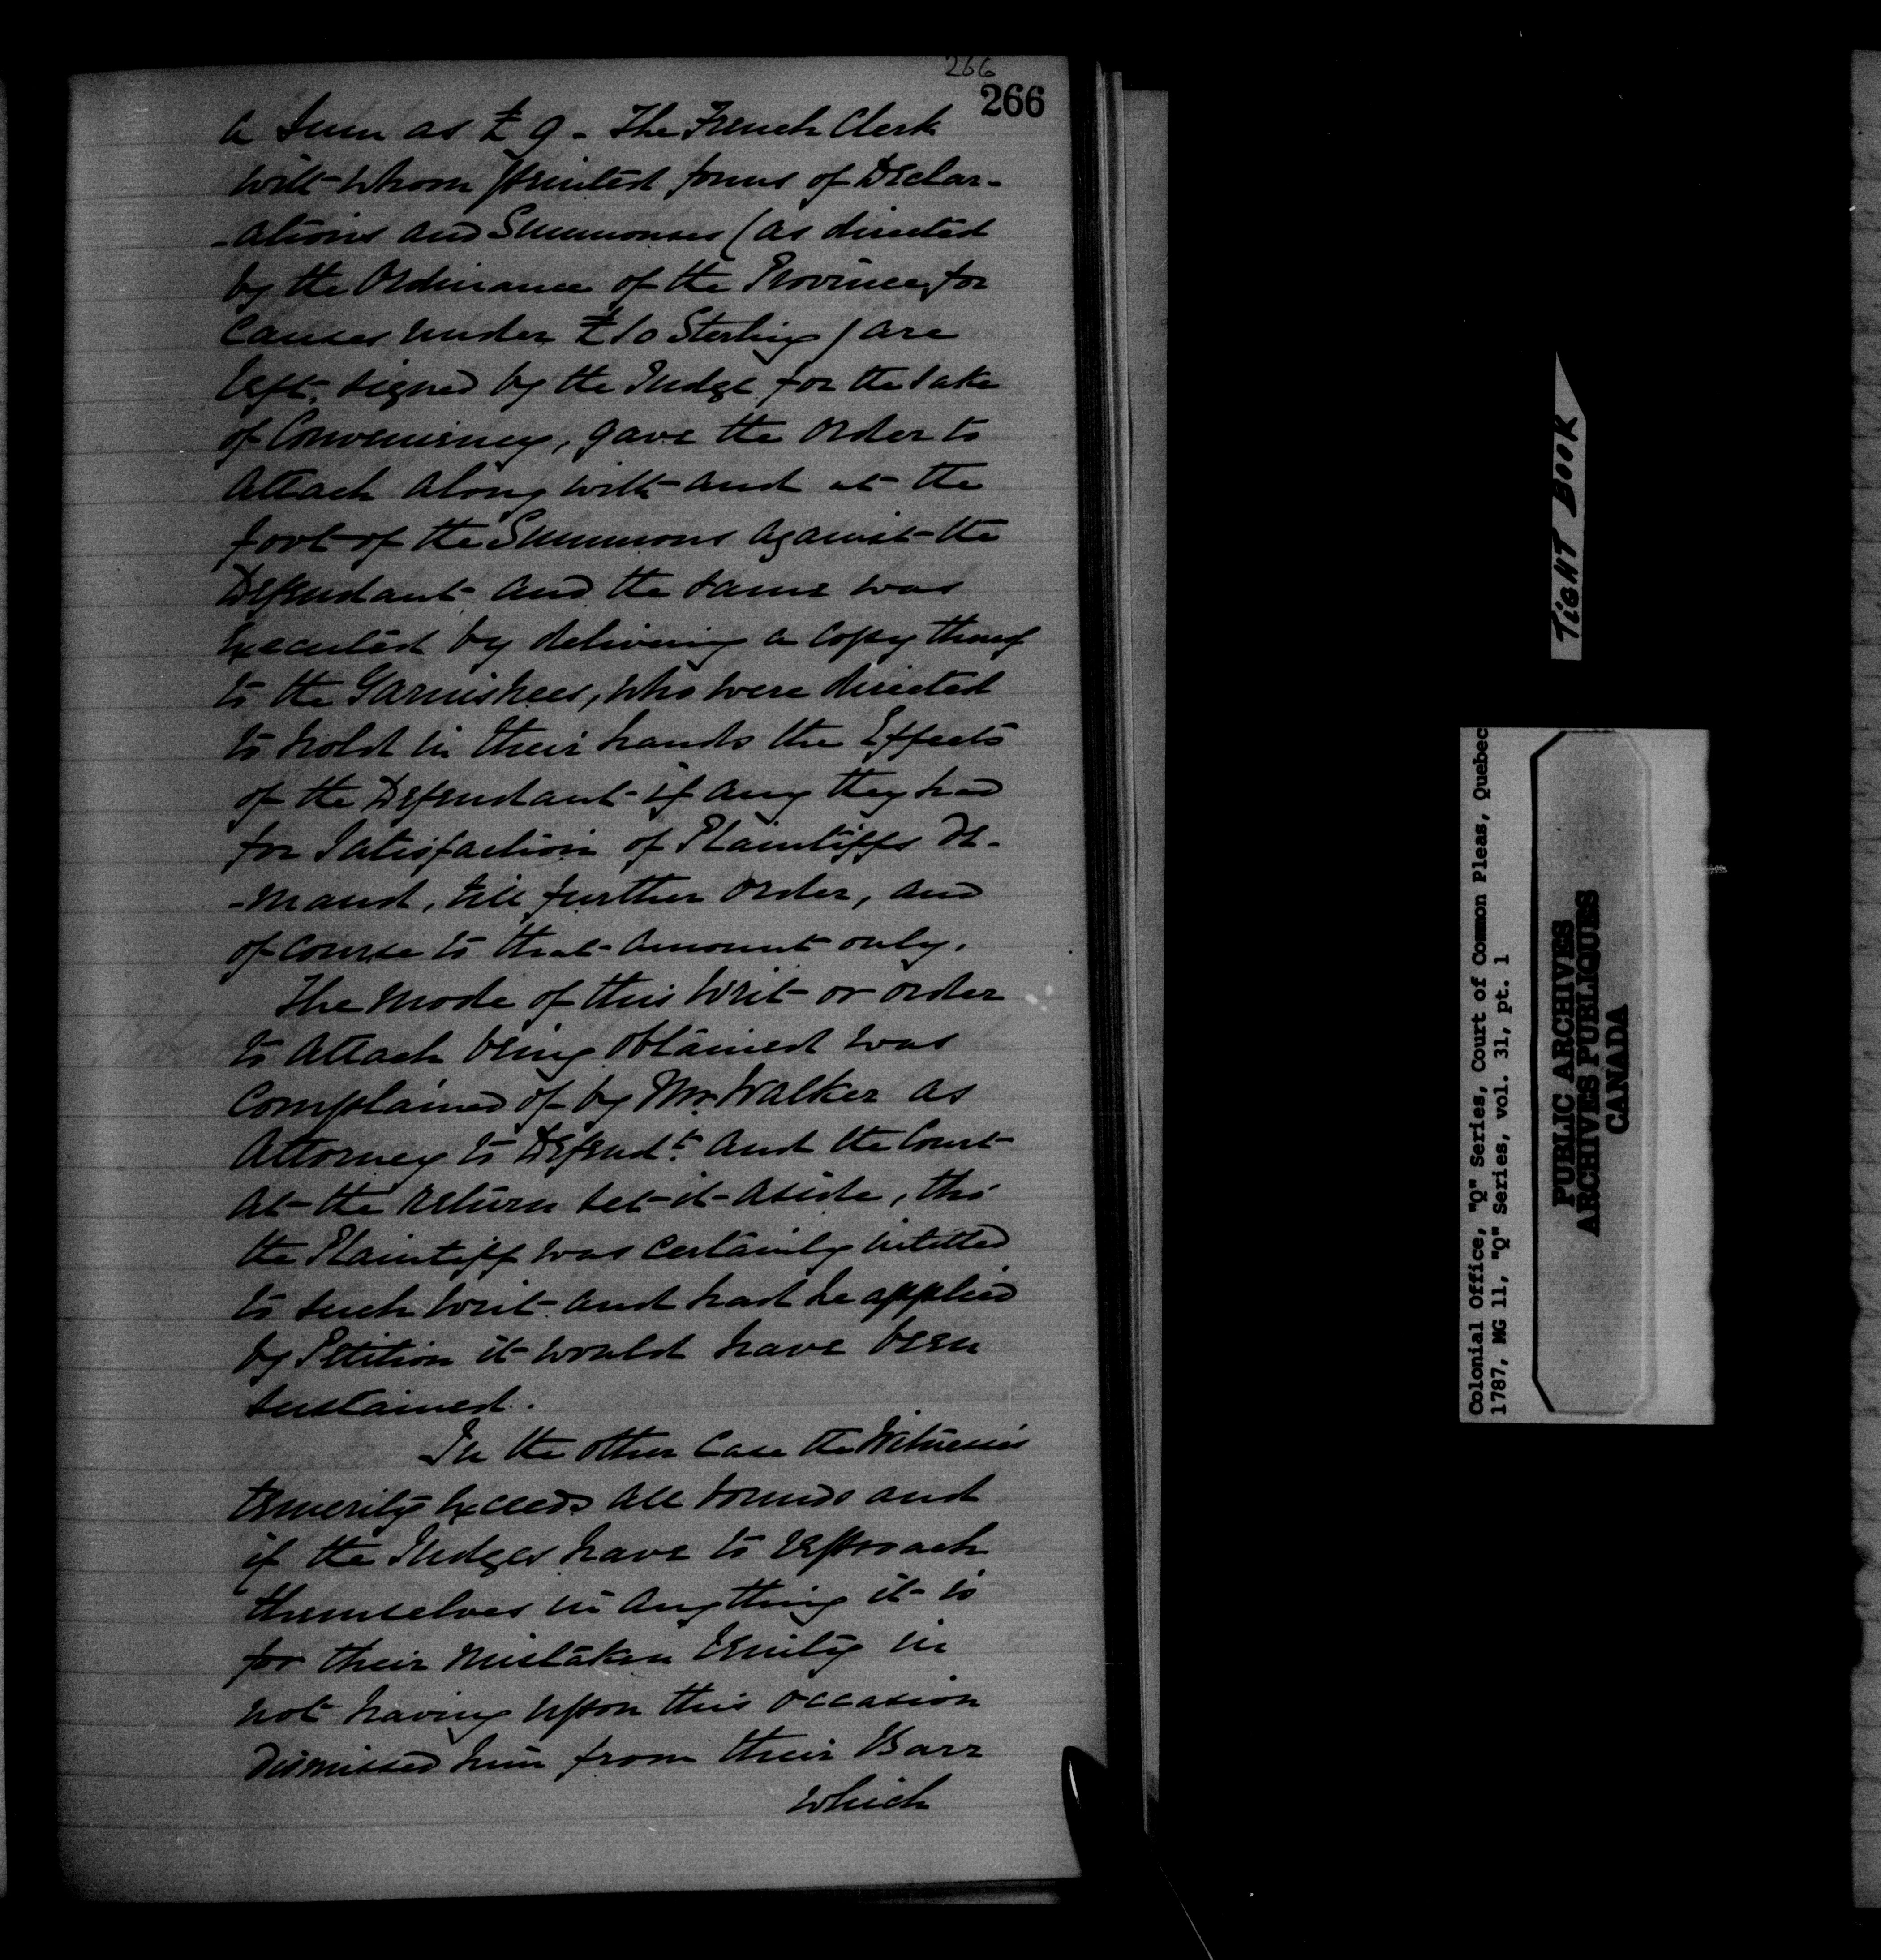 266
266
a sum as £9 - The French Clerk
with whom printed forms of Declar-
-ations and Summonses (as directed
by the Ordinance of the Province, for
Causes under £10 Sterling) are
left, signed by the Judge for the sake
of Conveniency, gave the order to
attach along with and at the
foot of the Summons against the
Defendant and the same was
Executed by delivering a Copy thereof
to the Garnishees, who were directed
to hold in their hands the Effects
of the Defendant if any they had
for Satisfaction of Plaintiffs de-
-mand, till further order, and
of course to that amount only.
The mode of this Writ or order
to attach being obtained was
Complained of by Mr. Walker as
Attorney to Defendt. and the Court
at the return set it aside, tho'
the Plaintiff was certainly intitled
to such Writ and had he applied
by Petition it would have been
sustained.
In the other Case the Witness's
temerity exceeds all bounds and
if the Judges have to reproach
themselves in any thing it is
for their mistaken lenity in
not having upon this occasion
dismissed him from their Barr
which
TIGHT BOOK
Colonial Office, "Q" Series, Court of Common Pleas, Quebec
1787, MG 11, "Q" Series, vol. 31, pt. 1
PUBLIC ARCHIVES
ARCHIVES PUBLIQUES
CANADA